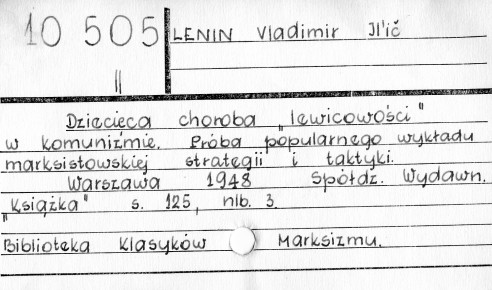 10 505 LENIN Vladimir Il'ič
II
Dziecięca choroba „lewicowości"
w komuniźmie. Próba popularnego wykładu
marksistowskiej strategii i taktyki.
Warszawa 1948 Spółdz. Wydawn.
"Książka" s. 125, nlb. 3.
Biblioteka Klasyków Marksizmu.